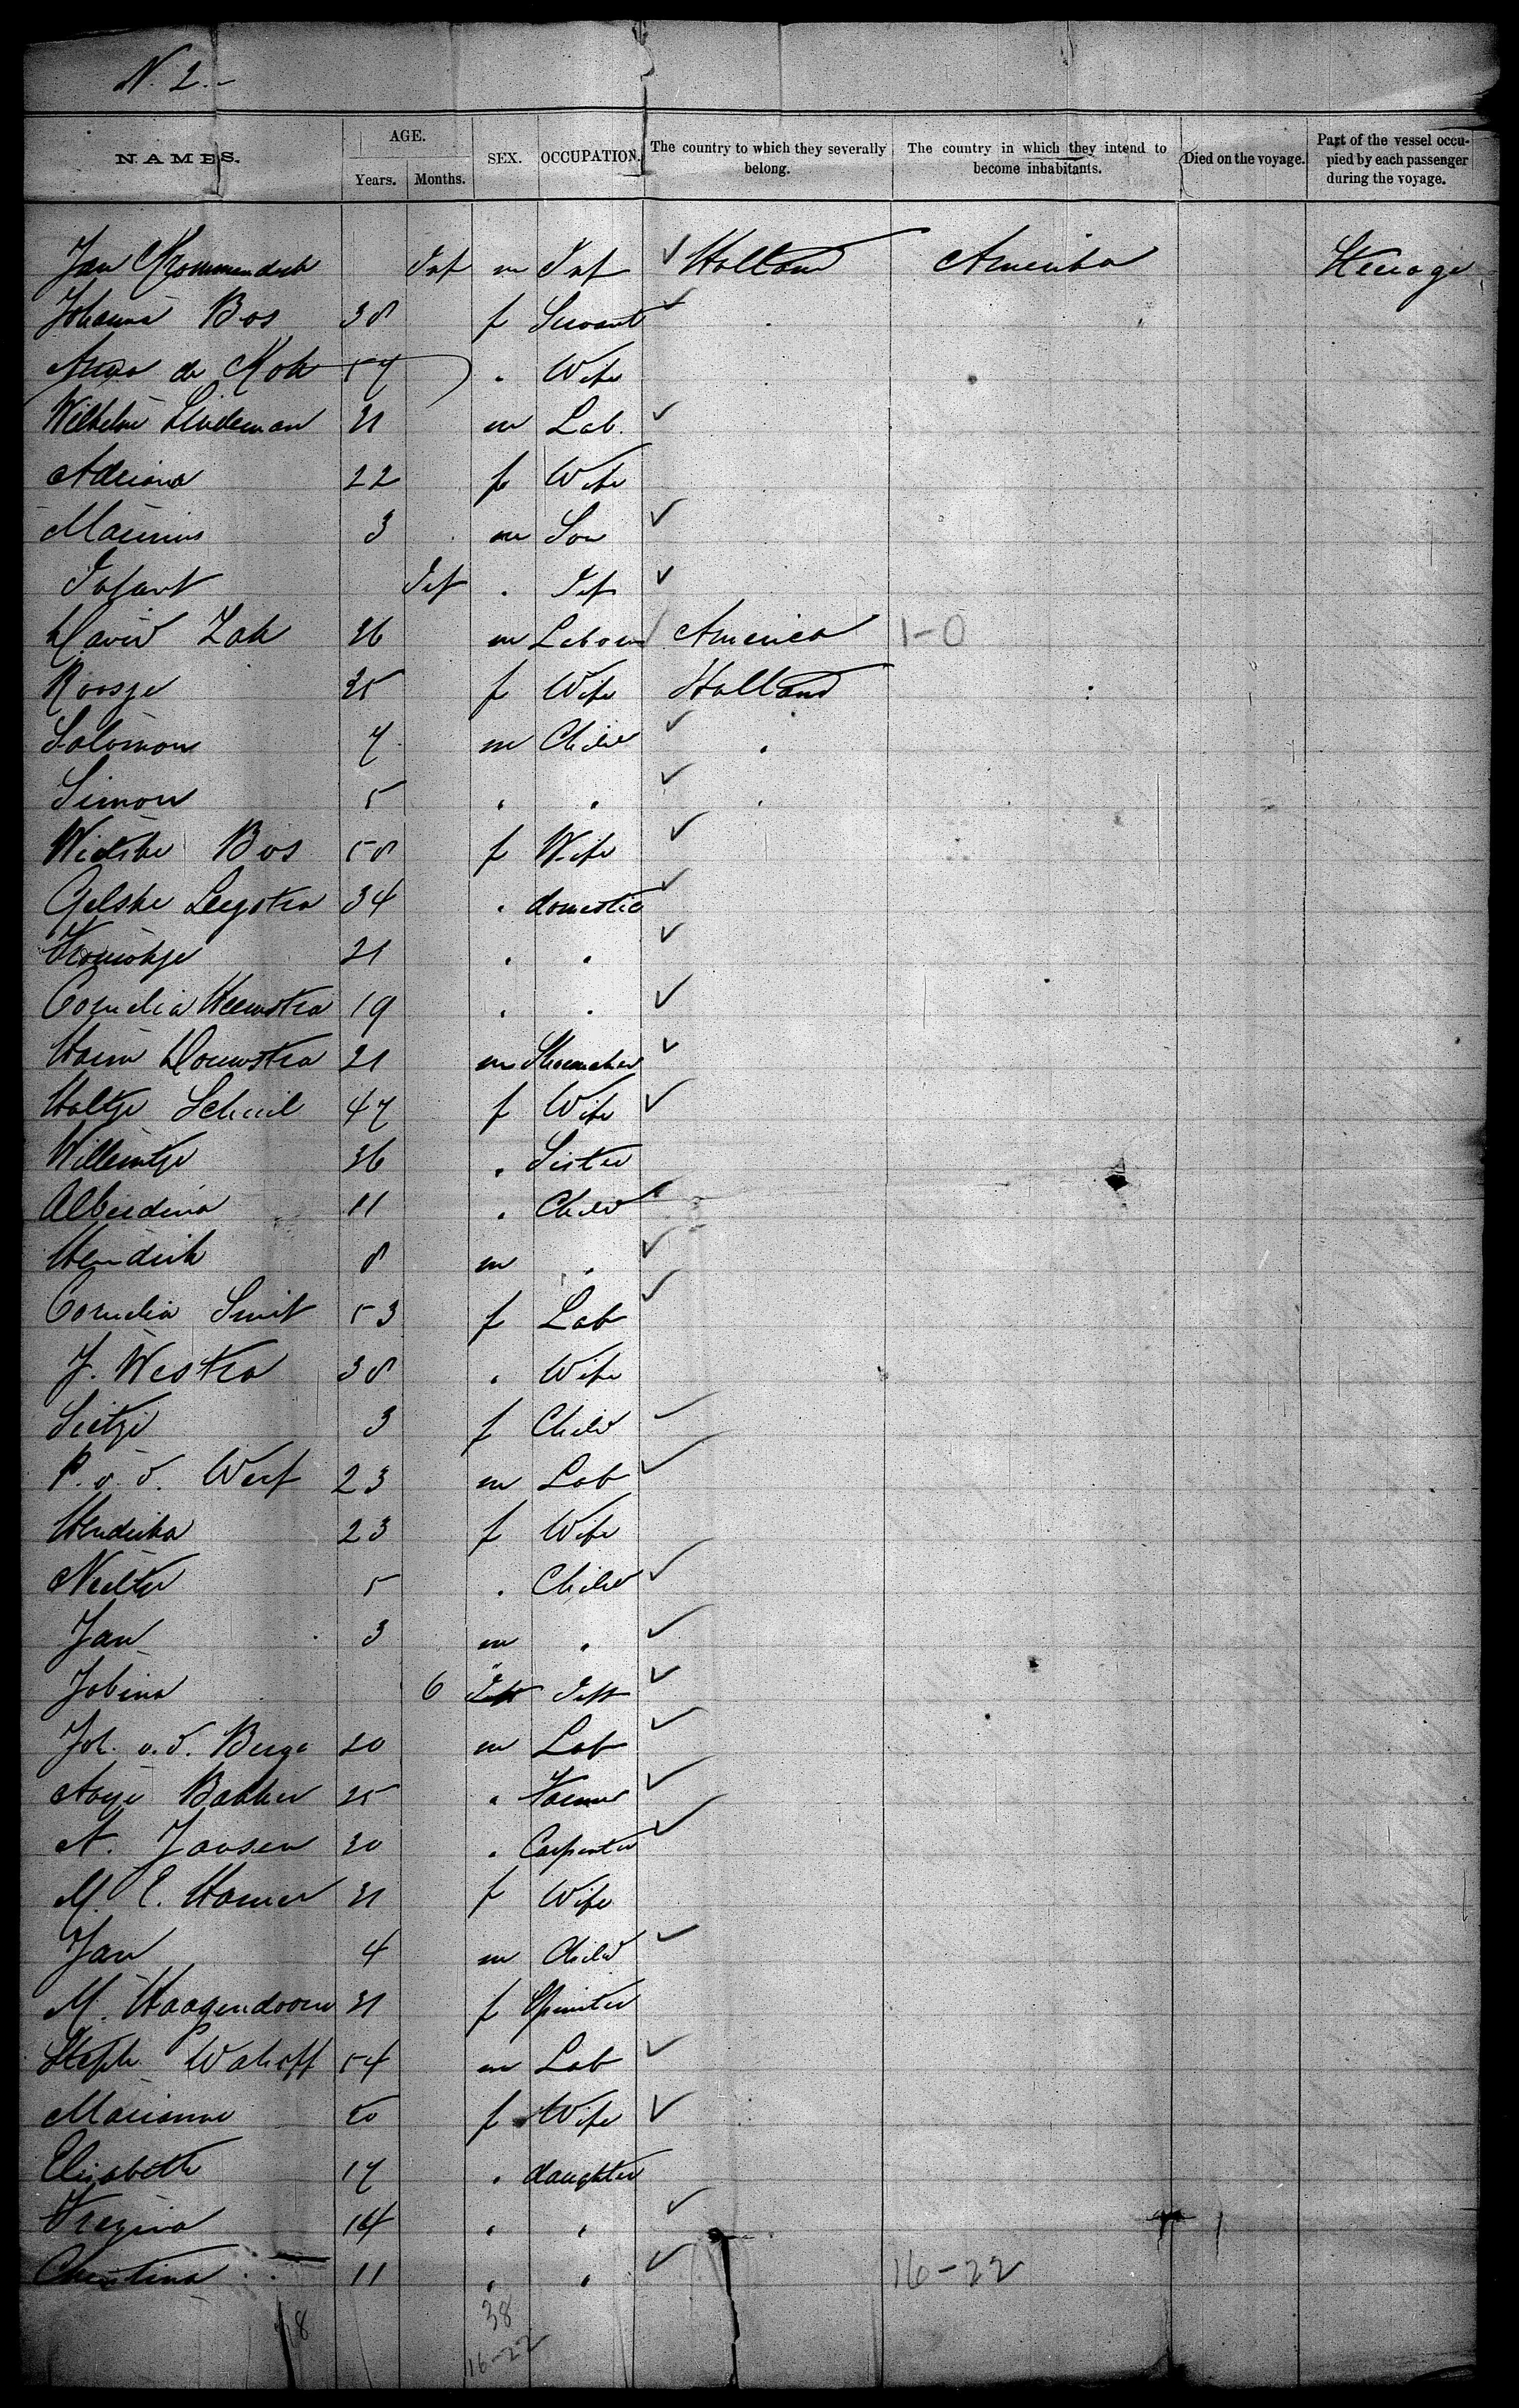 N. 2.-
NAMES. AGE. Years. Months. SEX. OCCUPATION. The country to which they severally belong. The country in which they intend to become inhabitants. Died on the voyage. Part of the vessel occupied by each passenger during the voyage.
Jan Inf m Inf Holland Amerika Steerage
Johanna Bos 38 f Servant
de Kok 57 " Wife
Wilhelm Lindeman 31 m Lab.
Adriana 22 f Wife
Marinus 3 m Son
Infant Inf " Inf
David Zak 36 m Labour America 1-0
Roosje 35 f Wife Holland
Salomon 7 m Child
Simon 5 " "
Wietske Bos 58 f Wife
Gelske 34 " domestic
21 " "
Cornelia Heemstra 19 " "
Harm Douwstra 21 m Shoemaker
Schuil 47 f Wife
Willemtje 36 " Sister
Alberdina 11 " Child
Hendrik 8 m "
Cornelia Smit 53 f Lab
J. Westra 38 " Wife
Sietje 3 f Child
P. v. d. Werf 23 m Lab
Hendrika 23 f Wife
Neeltje 5 " Child
Jan 3 m "
Jobina 6 Inf
Joh. v. d. Berge 20 m Lab
Bakker 25 " Farmer
A. Jansen 30 " Carpenter
M. E. Hamer 31 f Wife
Jan 4 m Child
M. Haagendoorn 31 f Spinster
Steph. Wahoff 54 m Lab
Marianne 50 f Wife
Elisabeth 17 " daughter
Fregina 14 " "
Christina 11 " " 16-22
38
16-22